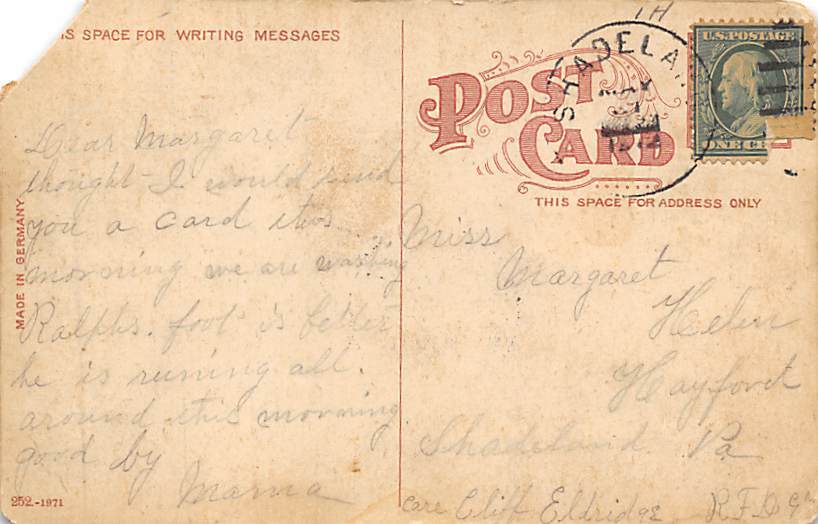 IS SPACE FOR WRITING MESSAGES
Dear Margaret
thought I would send
you a card this
morning we are washing
Ralphs. foot is better
he is runing all.
around this morning
good by
Mama
MADE IN GERMANY
252.-1971
POST
CARD
SHADELA
U.S. POSTAGE
ONE CE
THIS SPACE FOR ADDRESS ONLY
Miss
Margaret
Helen
Shadeland. Pa
care Cliff Eldridge R.F.D